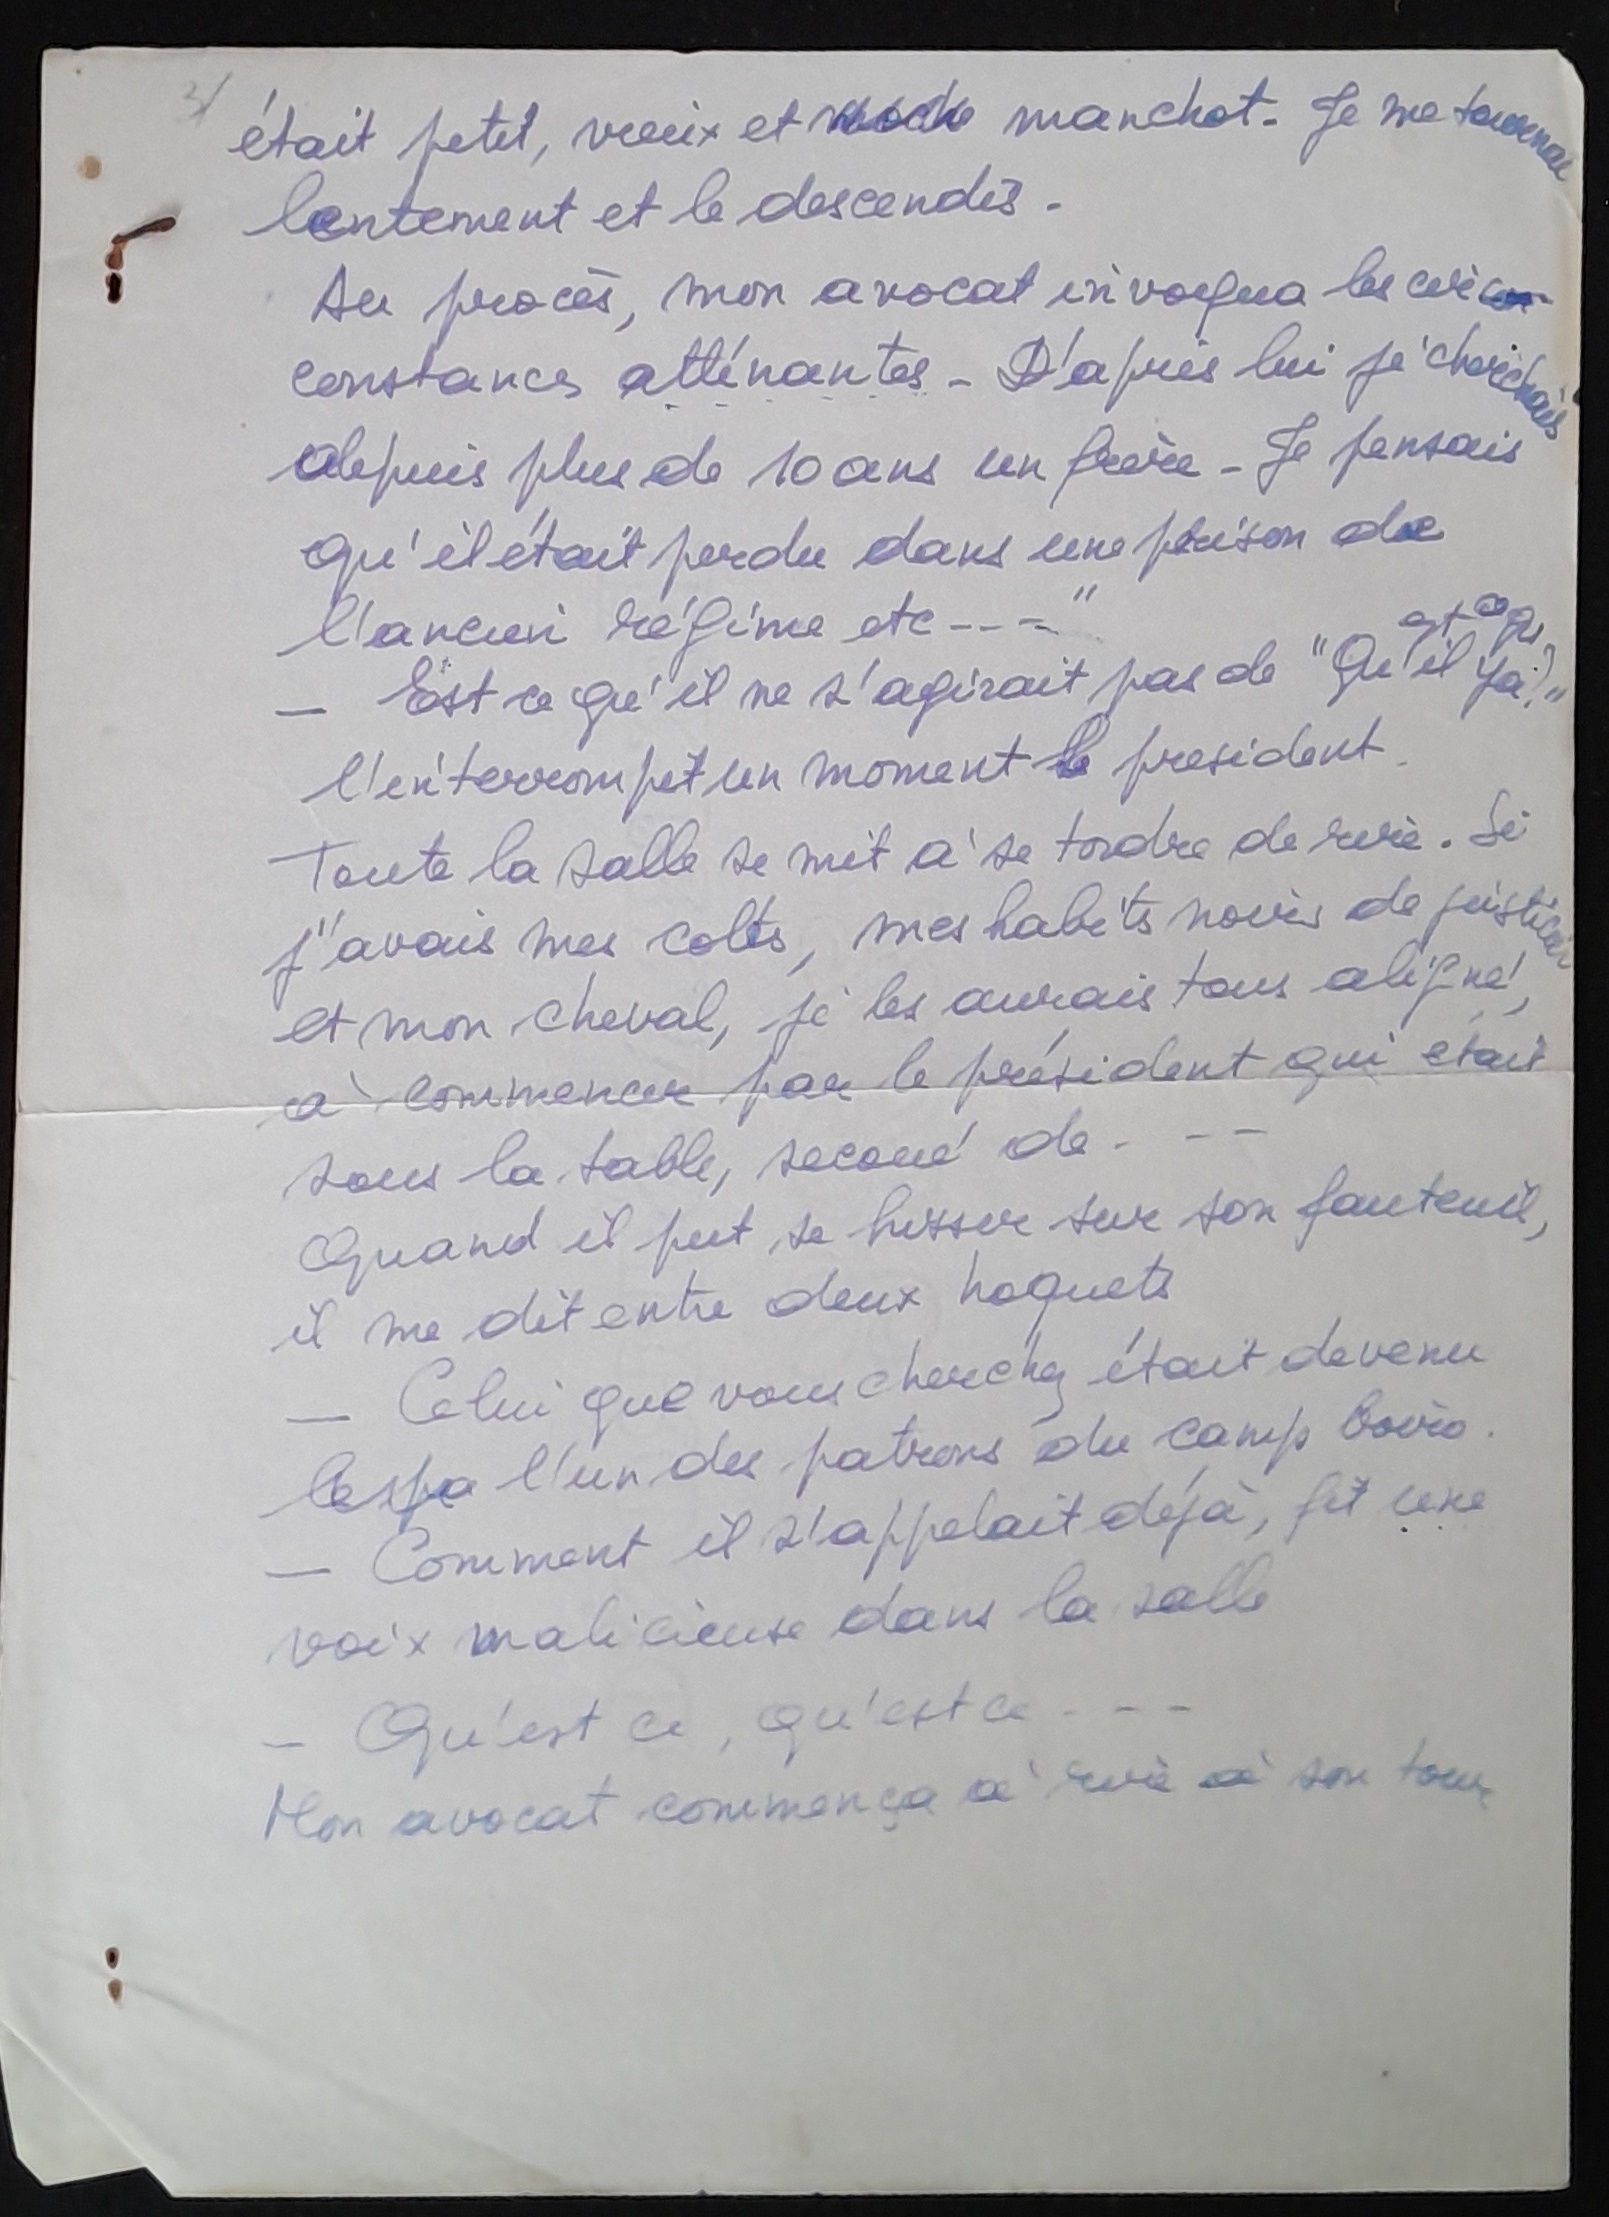 3/
était petit, vieux et manchot. Je me tournai
lentement et le descendis.
Au procès, mon avocat invoqua les cir
constances atténantes - D'après lui je cherchais
depuis plus de 10 ans un frère - Je pensais
qu'il était perdu dans une prison de
l'ancien régime etc ---"
— Est ce qu'il ne s'agirait pas de "Qu'est ce qu'il ya?"
l'interrompit un moment le president.
Toute la salle se mit à se tordre de rire. Si
j'avais mes colts, mes habits noirs de justicier
et mon cheval, je les aurais tous aligné,
à commencer par le président qui était
sous la table, secoué de - --
Quand il put se hisser sur son fauteuil,
il me dit entre deux hoquets
— Celui que vous cherchez était devenu
l'un des patrons du camp Boiro.
— Comment il s'appelait déjà, fit une
voix malicieuse dans la salle
— Qu'est ce, qu'est ce - --
Mon avocat commença à rire à son tour